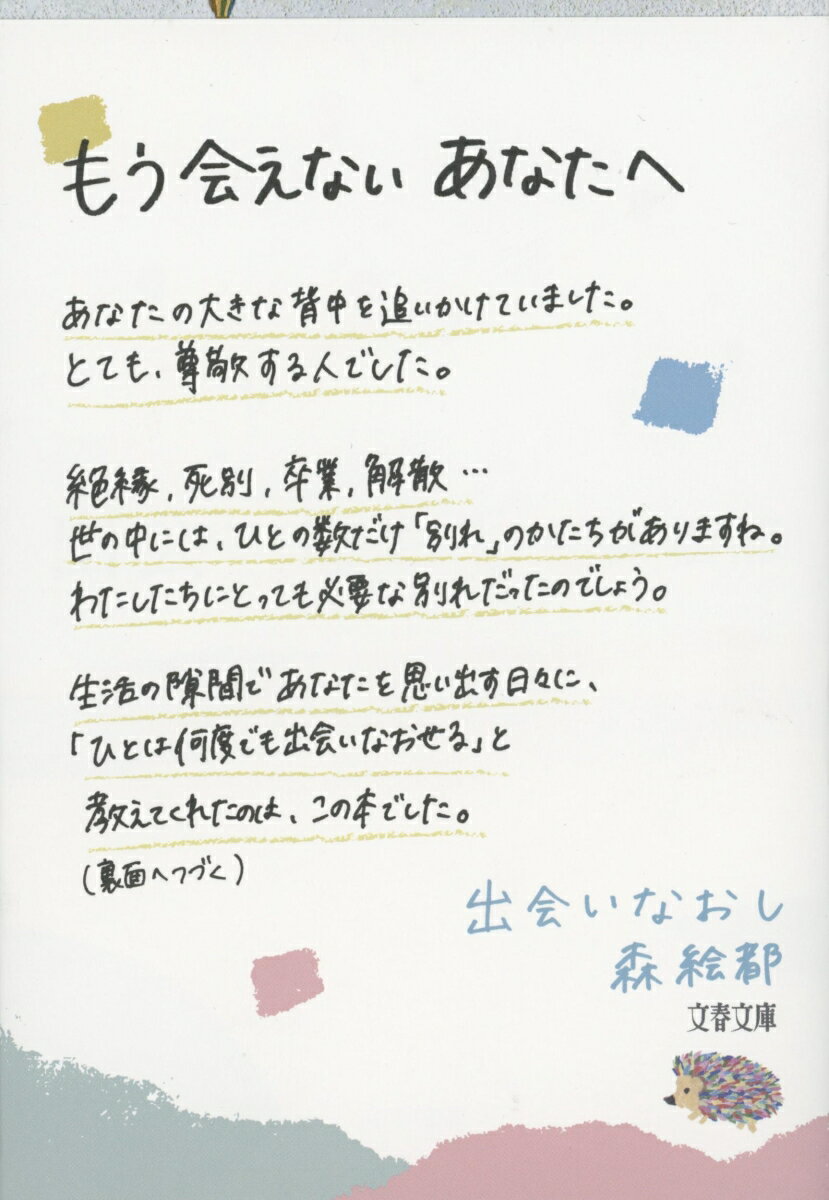 もう会えない あなたへ
あなたの大きな背中を追いかけていました。
とても、尊敬する人でした。
絶縁，死別，卒業，解散…
世の中には、ひとの数だけ「別れ」のかたちがありますね。
わたしたちにとっても必要な別れだったのでしょう。
生活の隙間であなたを思い出す日々に、
「ひとは何度でも出会いなおせる」と
教えてくれたのは、この本でした。
(裏面へつづく)
出会いなおし
森 絵都
文春文庫